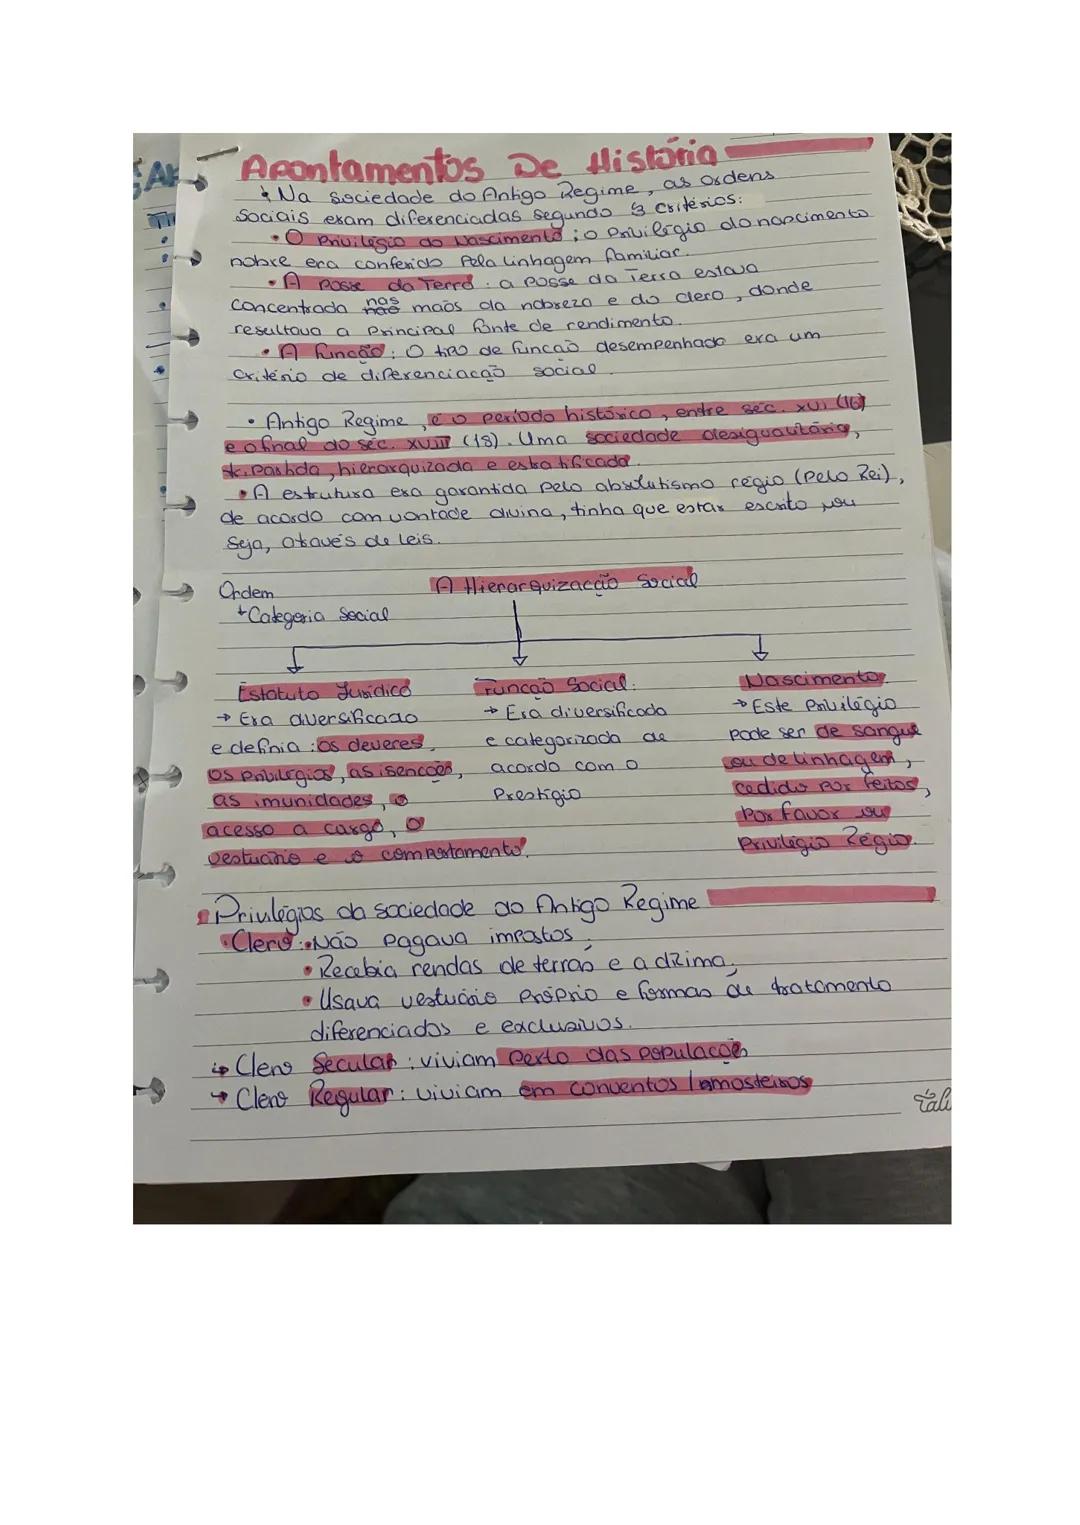 Apontamentos De História
Na sociedade do Antigo Regime, as ordens
sociais eram diferenciadas segundo 3 critérios:
• O Privilégio do Nascimento: o Privilégio do nascimento
nobre era conferido pela linhagem familiar.
• A Posse da Terra: a posse da Terra estava
concentrada nas maõs da nobreza e do clero, donde
resultava a Principal fonte de rendimento.
• A função: O tipo de função desempenhado era um
critério de diferenciação social.
• Antigo Regime, é o período histórico, entre séc. XVI (16)
e o final do séc. XVIII (18). Uma sociedade desigualitária,
partida, hierarquizada e estratificada.
• A estrutura era garantida pelo absolutismo régio (Pelo Rei),
de acordo com vontade divina, tinha que estar escrito, ou
seja, através de leis.
Ordem
A Hierarquização Social
Categoria Social
Estatuto Jurídico
→ Era diversificado
e definia: os deveres,
os privilégios, as isenções,
as imunidades, o
acesso a cargo, o
vestuário e o comportamento.
Função Social:
→ Era diversificada
e categorizada de
acordo com o
Prestígio
Nascimento:
→ Este Privilégio
pode ser de sangue
ou de linhagem,
cedido por feitos,
por favor ou
Privilégio Régio.
• Privilégios da sociedade do Antigo Regime
• Clero: • Não Pagava impostos;
• Recebia rendas de terras e a dízima;
• Usava vestuário Próprio e formas de tratamento
diferenciados e exclusivos.
↳ Clero Secular: viviam perto das populações
→ Clero Regular: viviam em conventos / mosteiros